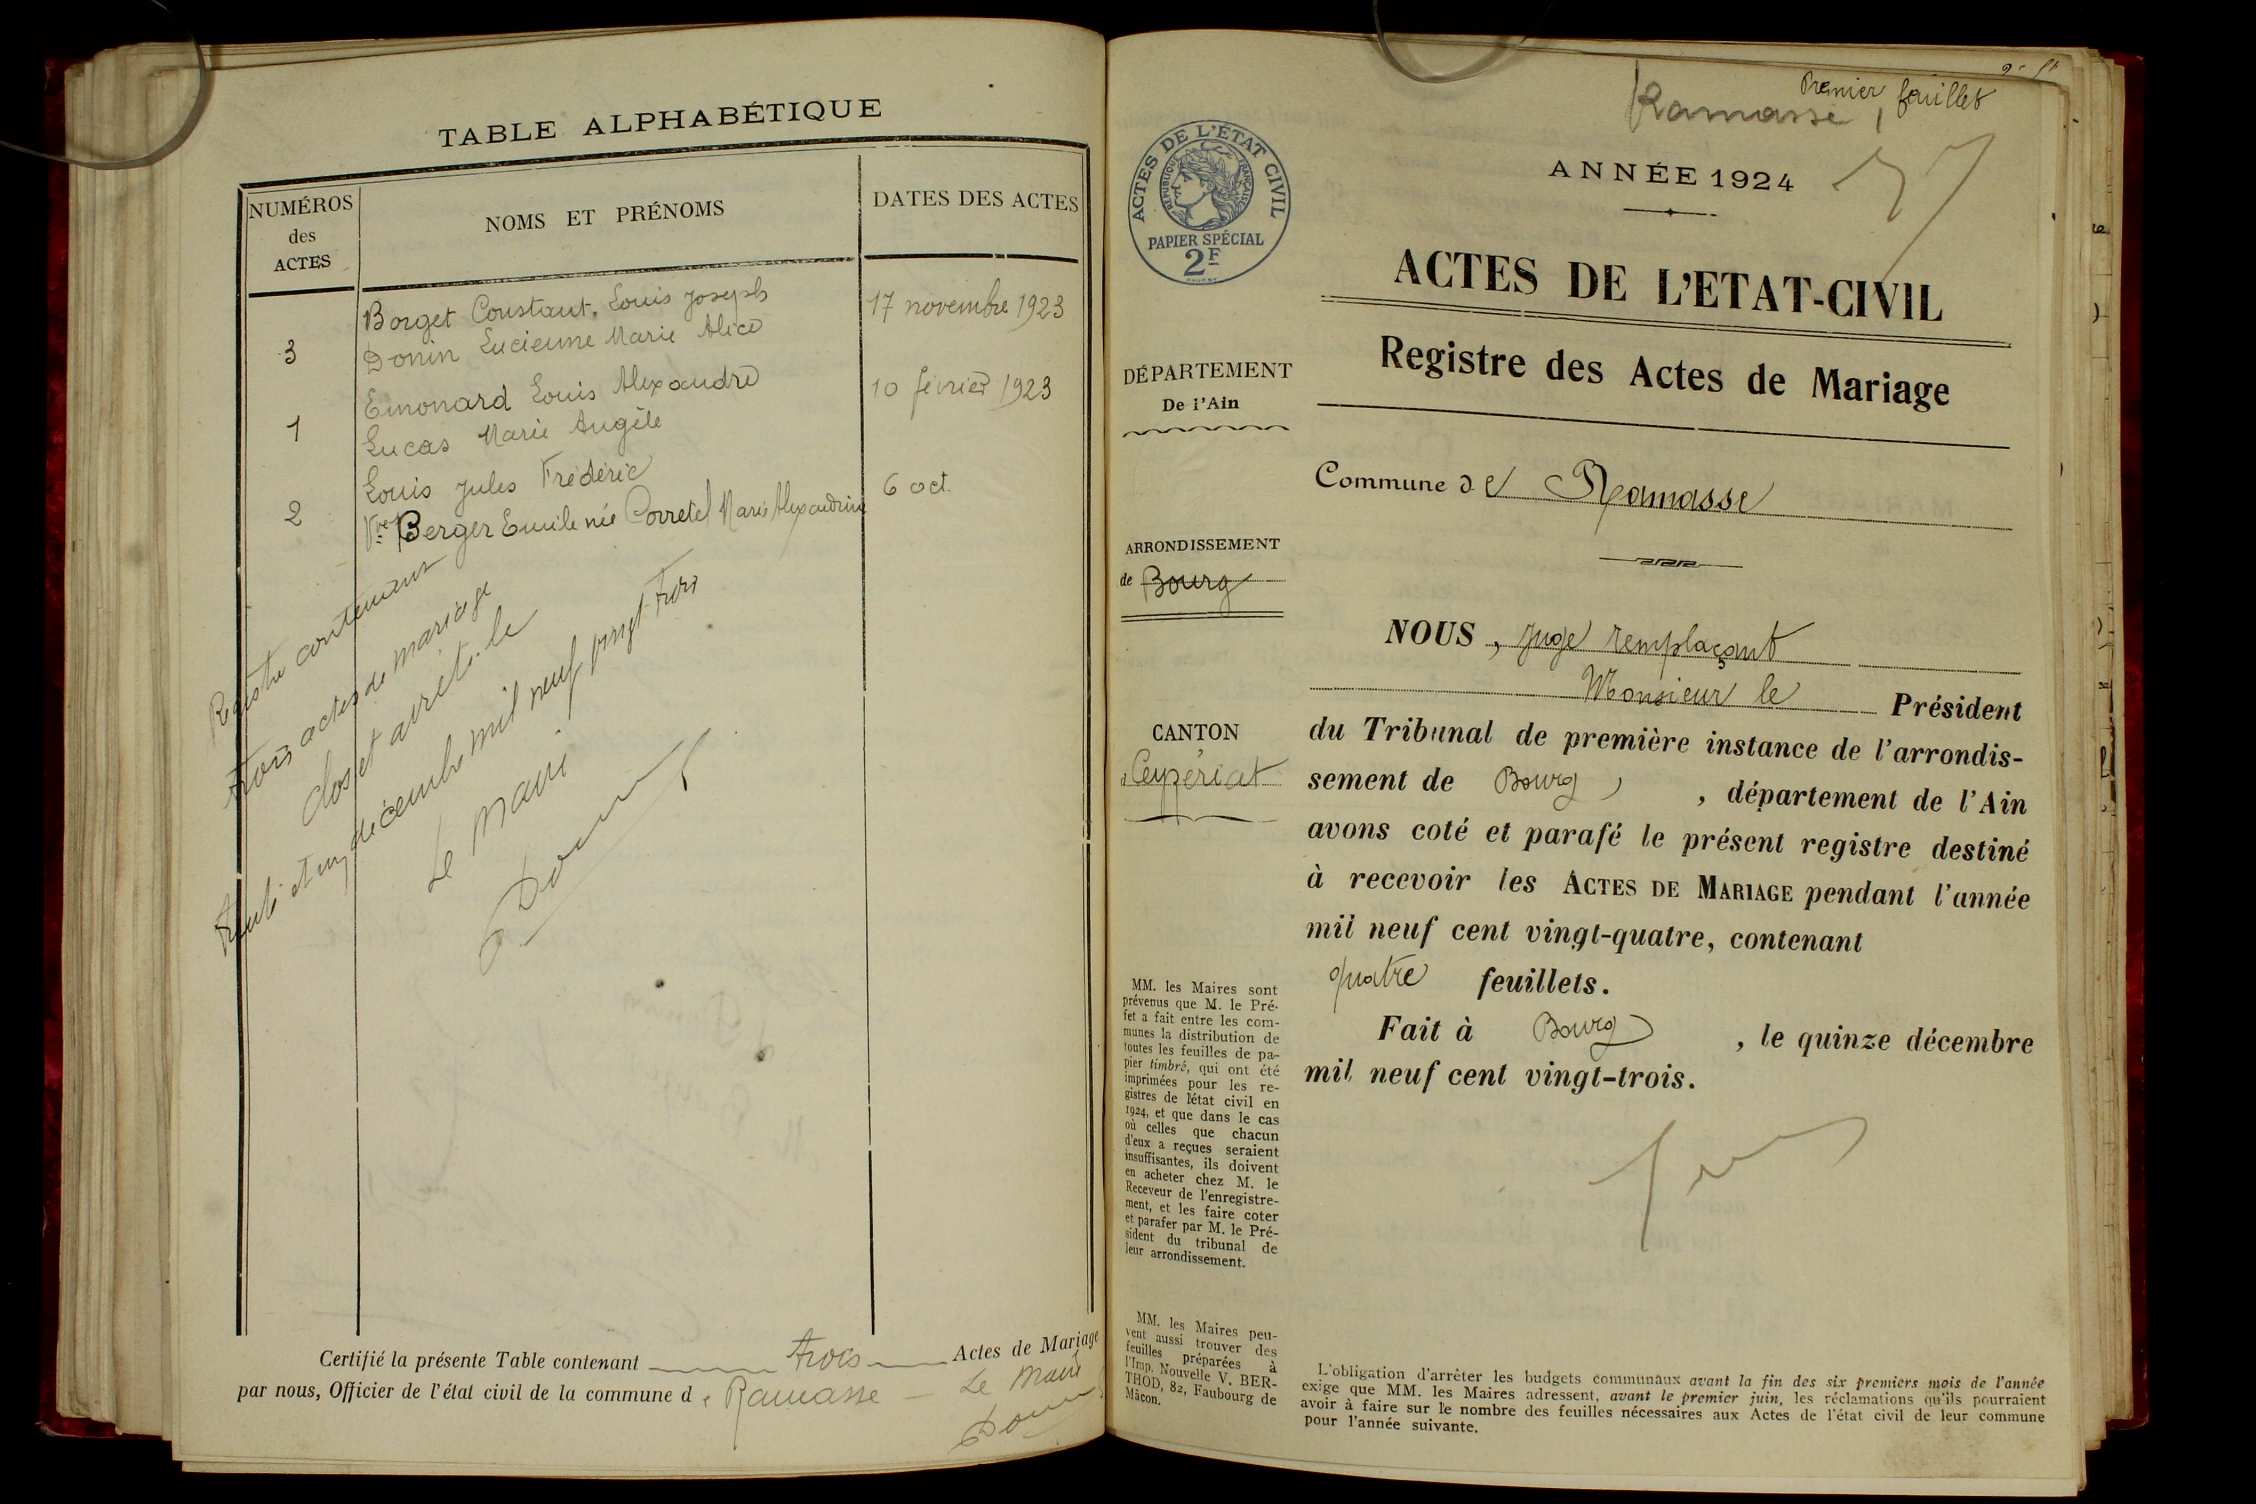 TABLE ALPHABÉTIQUE
NUMÉROS
des
ACTES
NOMS ET PRÉNOMS
DATES DES ACTES
Borget Constant, Louis Joseph
17 novembre 1923
3
Donin Lucienne Marie Alice
Emonard Louis Alexandre
10 février 1923
1
Lucas Marie Angèle
Louis Jules Frédéric
6 oct.
2
Vve Berger Emile née Corretel Marie Alexandrine
Registre contenant
trois actes de mariage
clos et arrêté le
trente et un décembre mil neuf vingt-trois
Le Maire
Certifié la présente Table contenant trois Actes de Mariage
par nous, Officier de l'état civil de la commune de Ramasse
Le Maire
Premier feuillet
Ramasse
ACTES DE L'ÉTAT CIVIL
RÉPUBLIQUE FRANÇAISE
PAPIER SPÉCIAL
2F
ANNÉE 1924
ACTES DE L'ETAT-CIVIL
Registre des Actes de Mariage
DÉPARTEMENT
De l'Ain
Commune de Ramasse
ARRONDISSEMENT
de Bourg
CANTON
Ceyzériat
NOUS, Juge remplaçant
Monsieur le Président
du Tribunal de première instance de l'arrondis-
sement de Bourg, département de l'Ain
avons coté et parafé le présent registre destiné
à recevoir les ACTES DE MARIAGE pendant l'année
mil neuf cent vingt-quatre, contenant
quatre feuillets.
Fait à Bourg, le quinze décembre
mil neuf cent vingt-trois.
MM. les Maires sont
prévenus que M. le Pré-
fet a fait entre les com-
munes la distribution de
toutes les feuilles de pa-
pier timbré, qui ont été
imprimées pour les re-
gistres de l'état civil en
1924, et que dans le cas
où celles que chacun
d'eux a reçues seraient
insuffisantes, ils doivent
en acheter chez M. le
Receveur de l'enregistre-
ment, et les faire coter
et parafer par M. le Pré-
sident du tribunal de
leur arrondissement.
MM. les Maires peu-
vent aussi trouver des
feuilles préparées à
l'Imp. Nouvelle V. BER-
THOD, 82, Faubourg de
Mâcon.
L'obligation d'arrêter les budgets communaux avant la fin des six premiers mois de l'année
exige que MM. les Maires adressent, avant le premier juin, les réclamations qu'ils pourraient
avoir à faire sur le nombre des feuilles nécessaires aux Actes de l'état civil de leur commune
pour l'année suivante.